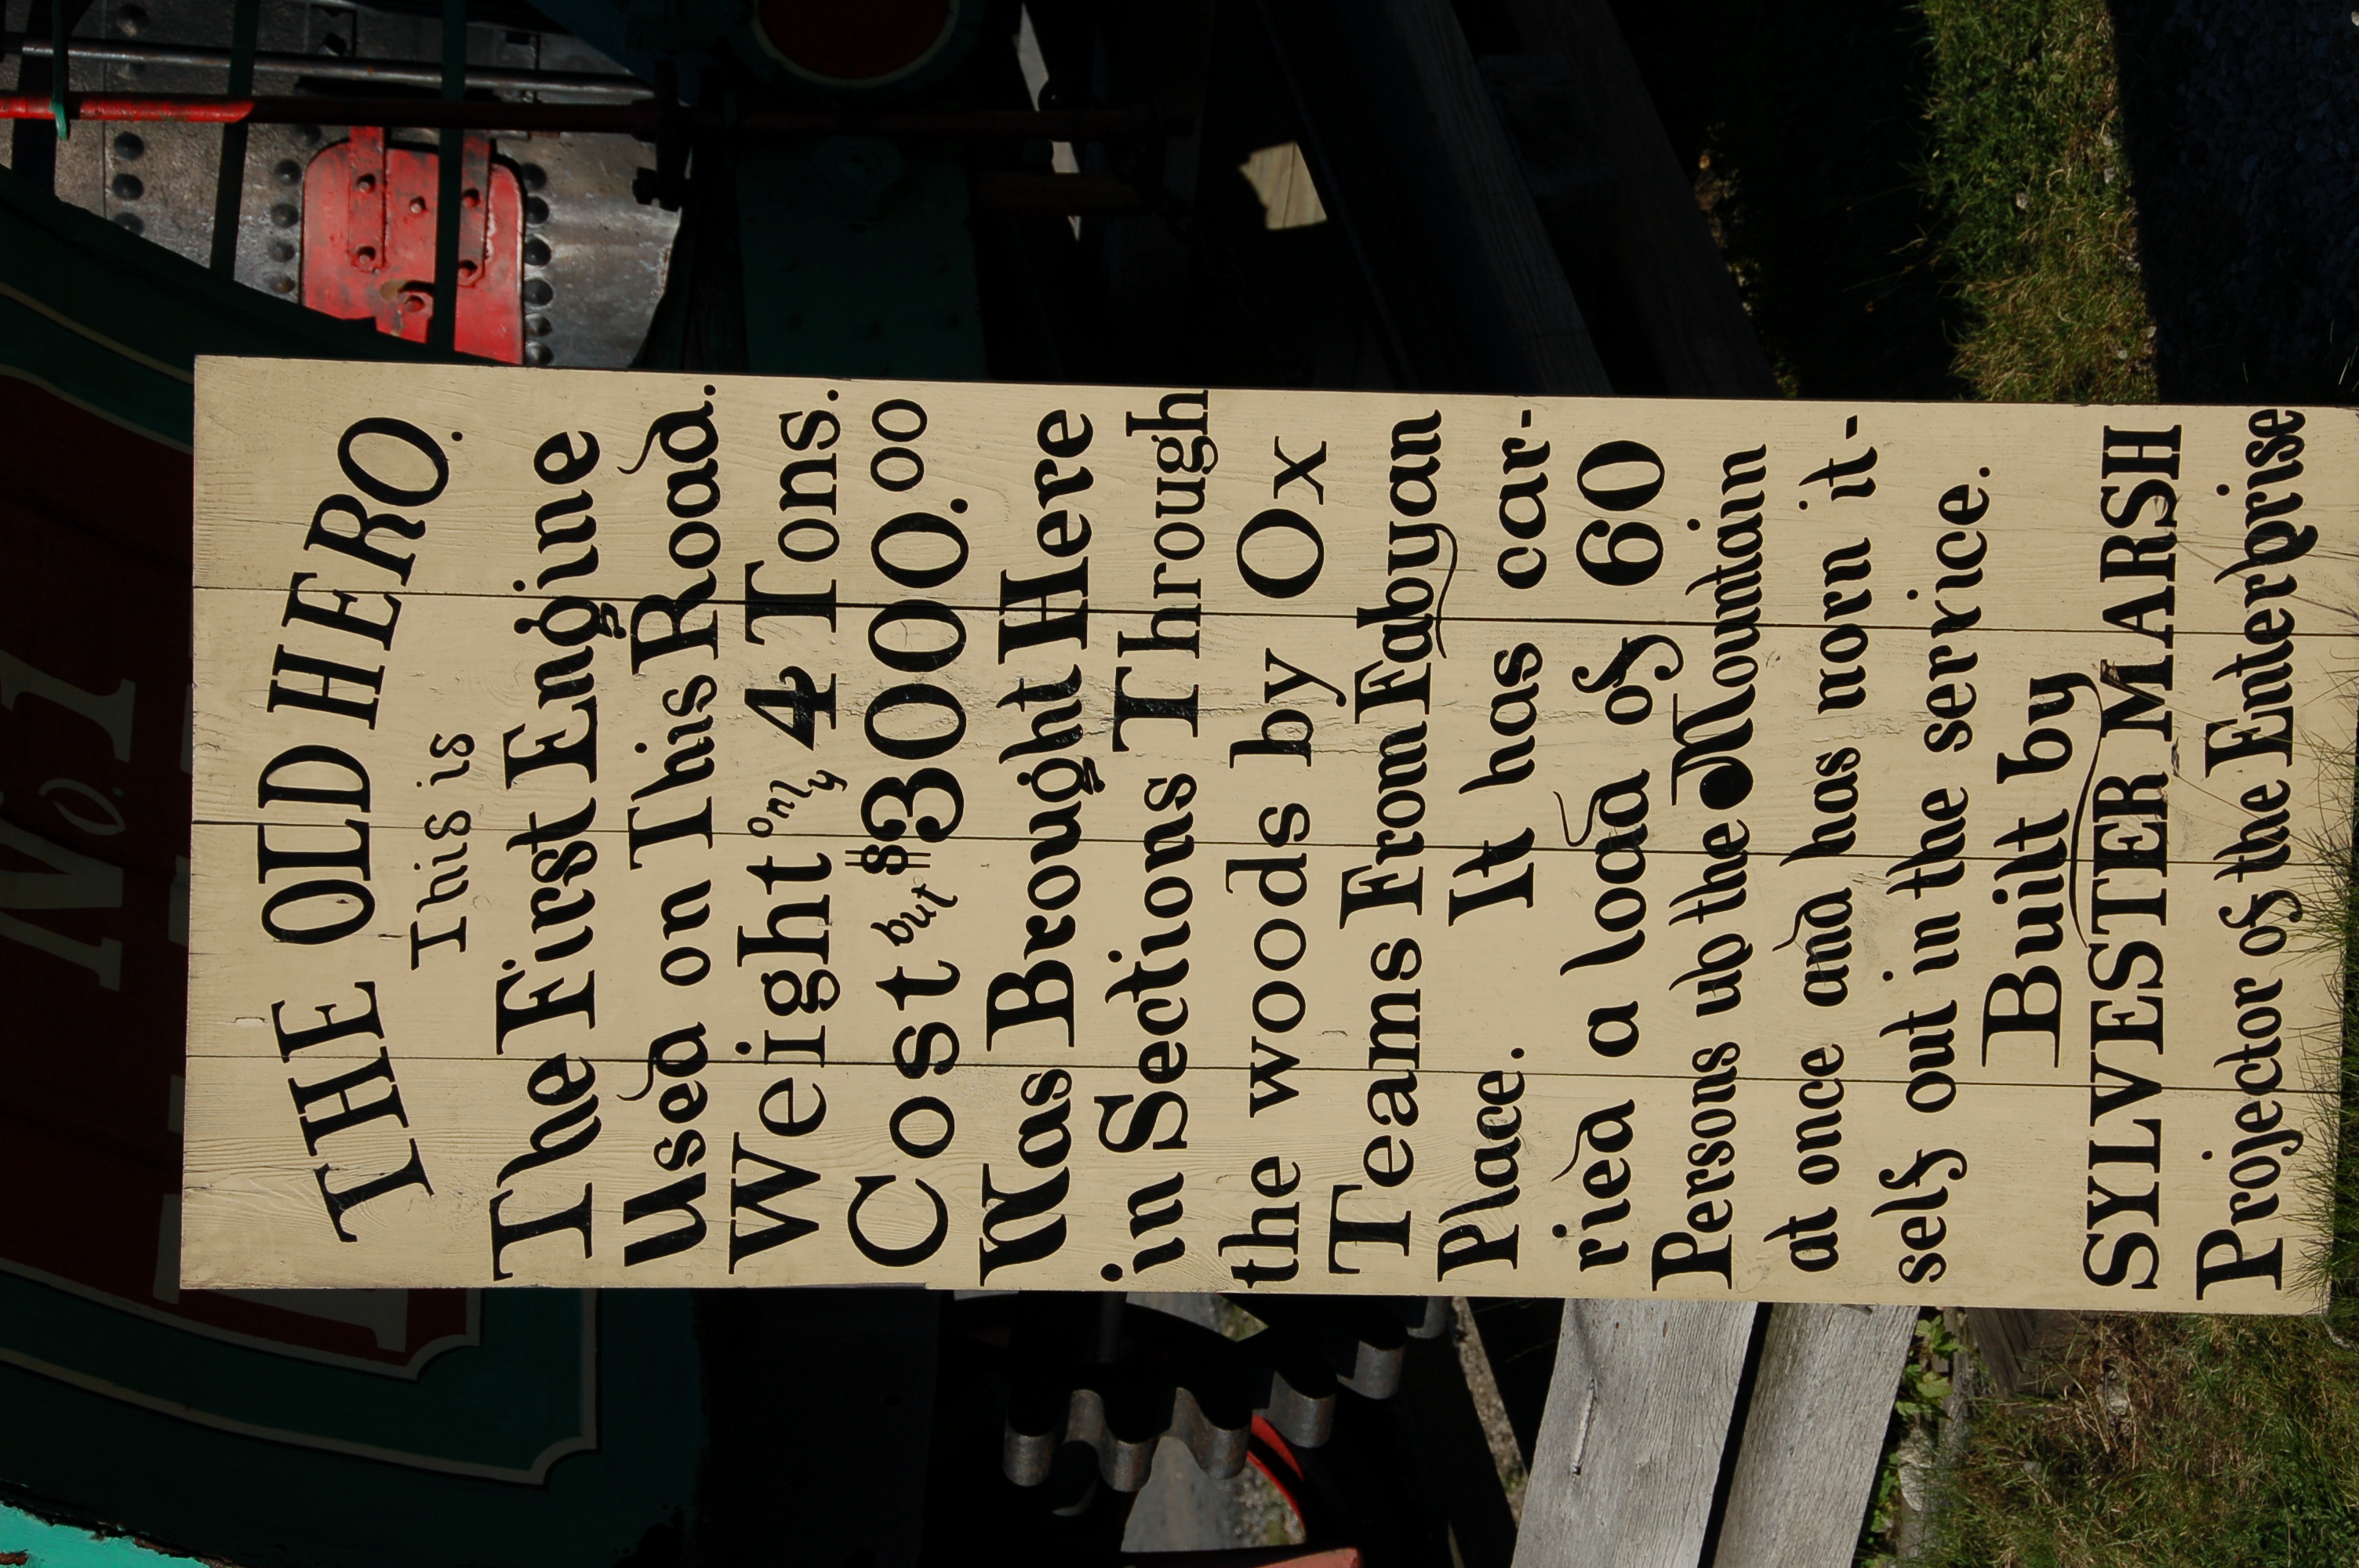 THE OLD HERO.
This is
The First Engine
Used on This Road.
Weight only 4 Tons.
Cost but $3000.00
Was Brought Here
in Sections Through
the woods by Ox
Teams From Fabyan
Place. It has car-
ried a load of 60
Persons up the Mountain
at once and has worn it-
self out in the service.
Built by
SYLVESTER MARSH
Projector of the Enterprise